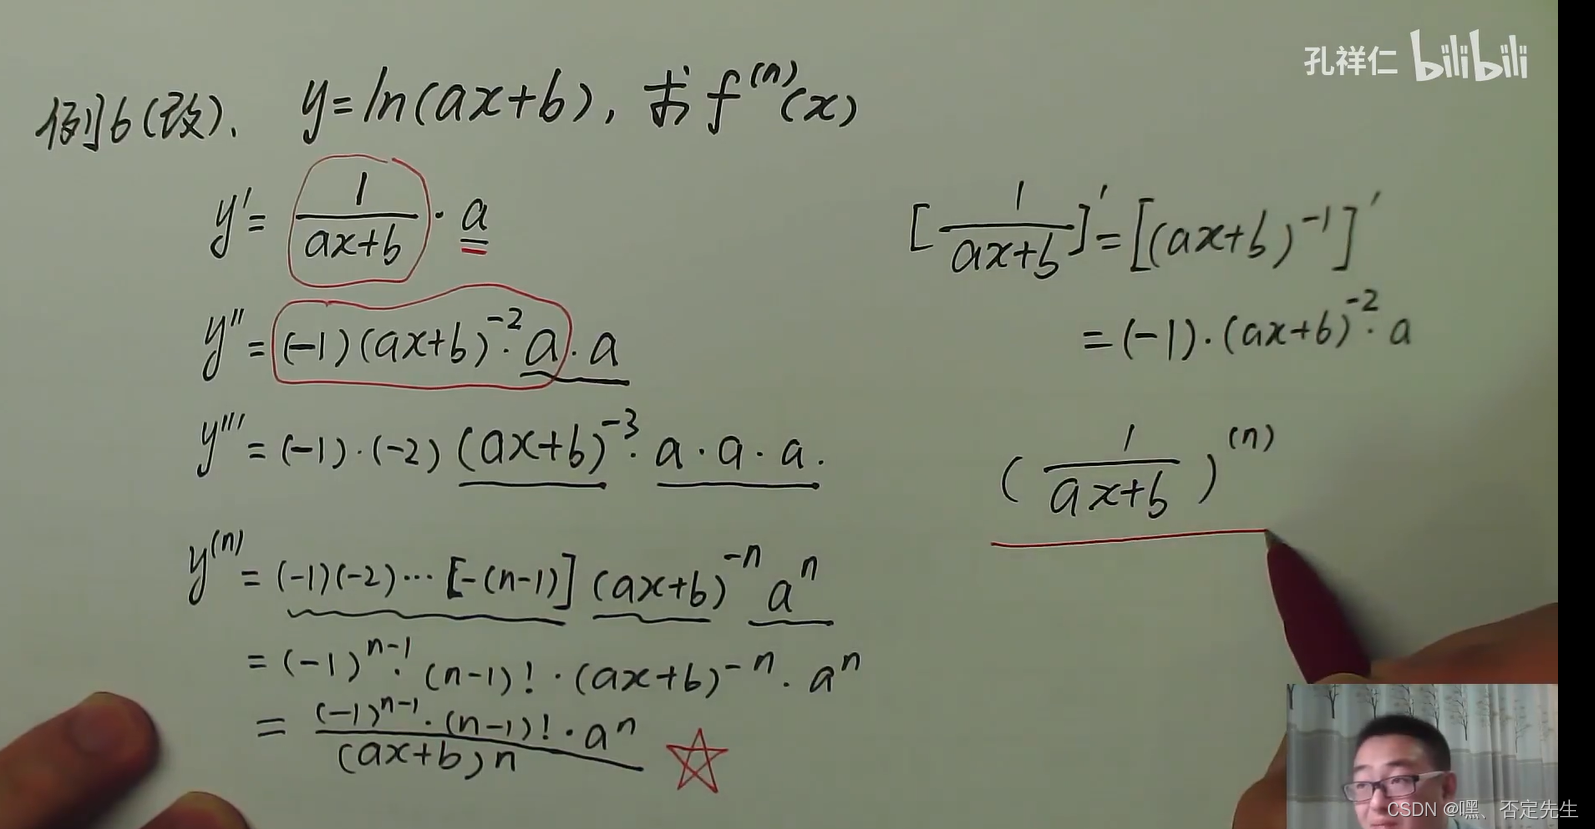 孔祥仁 bilibili
例6(改). y=ln(ax+b), 求 f^{(n)}(x)
y' = \frac{1}{ax+b} · a
y'' = (-1)(ax+b)^{-2} · a · a
y''' = (-1)·(-2) (ax+b)^{-3} · a · a · a.
y^{(n)} = (-1)(-2)··· [-(n-1)] (ax+b)^{-n} a^n
= (-1)^{n-1} · (n-1)! · (ax+b)^{-n} · a^n
= \frac{(-1)^{n-1} · (n-1)! · a^n}{(ax+b)n}
[\frac{1}{ax+b}]' = [(ax+b)^{-1}]'
= (-1) · (ax+b)^{-2} · a
(\frac{1}{ax+b})^{(n)}
CSDN @嘿、否定先生